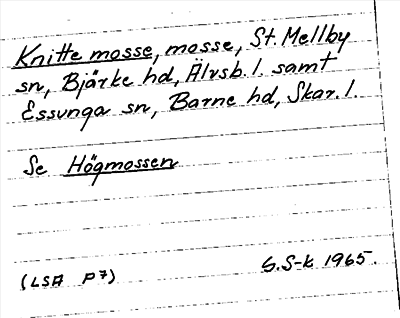 Knitte mosse, mosse, St. Mellby
sn, Bjärke hd, Älvsb. l. samt
Essunga sn, Barne hd, Skar. l.
Se Högmossen
(LSA P7)
G.S-k 1965.